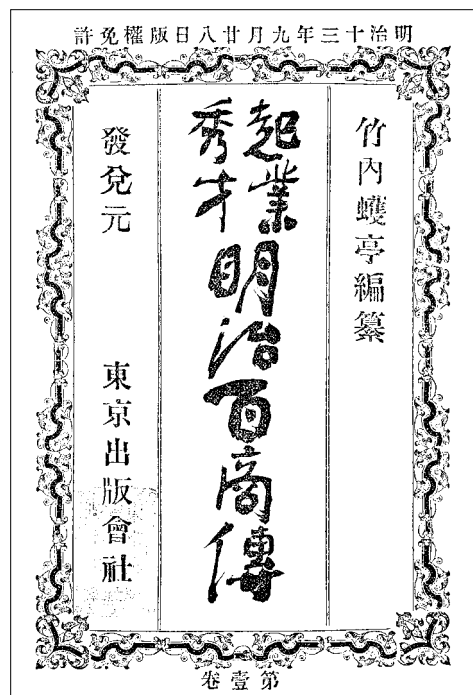 明治十三年九月廿八日版權免許
竹內蠖亭編纂
起業
秀才
明治百商傳
發兌元 東京出版會社
第壹卷